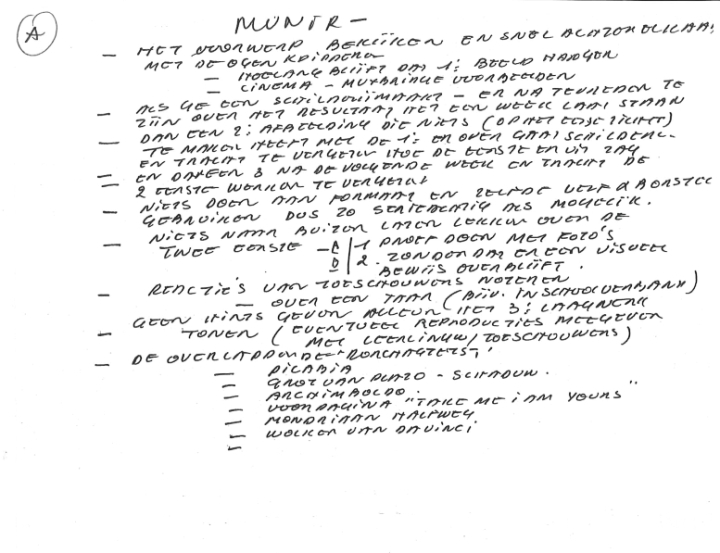 A
MUNTR -
- HET VOORWERP BEKIJKEN EN SNEL ACHTER ELKAAR
MET DE OGEN KNIPPEREN
- HOELANG BLIJFT DAT 1e BEELD HANGEN
- CINEMA - MUYBRIDGE VOORBEELDEN
- ALS GE EEN SCHILDERIJ MAAKT - ER NA TEVREDEN TE
ZIJN OVER HET RESULTAAT HET EEN WEEK LAAT STAAN
- DAN EEN 2e AFBEELDING DIE NIETS (OP HET EERSTE ZICHT)
TE MAKEN HEEFT MET DE 1e ER OVER GAAT SCHILDEREN
EN TRACHT TE VERGETEN HOE DE EERSTE ER UIT ZAG
- EN DAN EEN 3 NA DE VOLGENDE WEEK EN TRACHT DE
2 EERSTE WERKEN TE VERGETEN
- NIETS DOEN AAN FORMAAT EN ZELFDE VERF & BORSTEL
GEBRUIKEN DUS ZO MOGELIJK.
- NIETS NAAR BUITEN LATEN LEKKEN OVER DE
- TWEE EERSTE - 1 PROEF DOEN MET FOTO'S
2. ZONDER DAT ER EEN VISUEEL
BEWIJS OVERBLIJFT.
- REACTIE'S VAN TOESCHOUWERS NOTEREN
- OVER EEN JAAR (BIJV. IN SCHOOLVERBAND)
- GEEN HINTS GEVEN ALLEEN HET 3e LAAGWERK
- TONEN (EVENTUEEL REPRODUCTIES MEEGEVEN
MET LEERLINGEN/TOESCHOUWERS)
- DE OVERLAPPENDE
- PICABIA
- GROT VAN PLATO - SCHADUW.
- ARCHIMBOLDO.
- VOORPAGINA "TAKE ME I AM YOURS"
- MONDRIAAN HALFWEG
- WOLKEN VAN DAVINCI
-